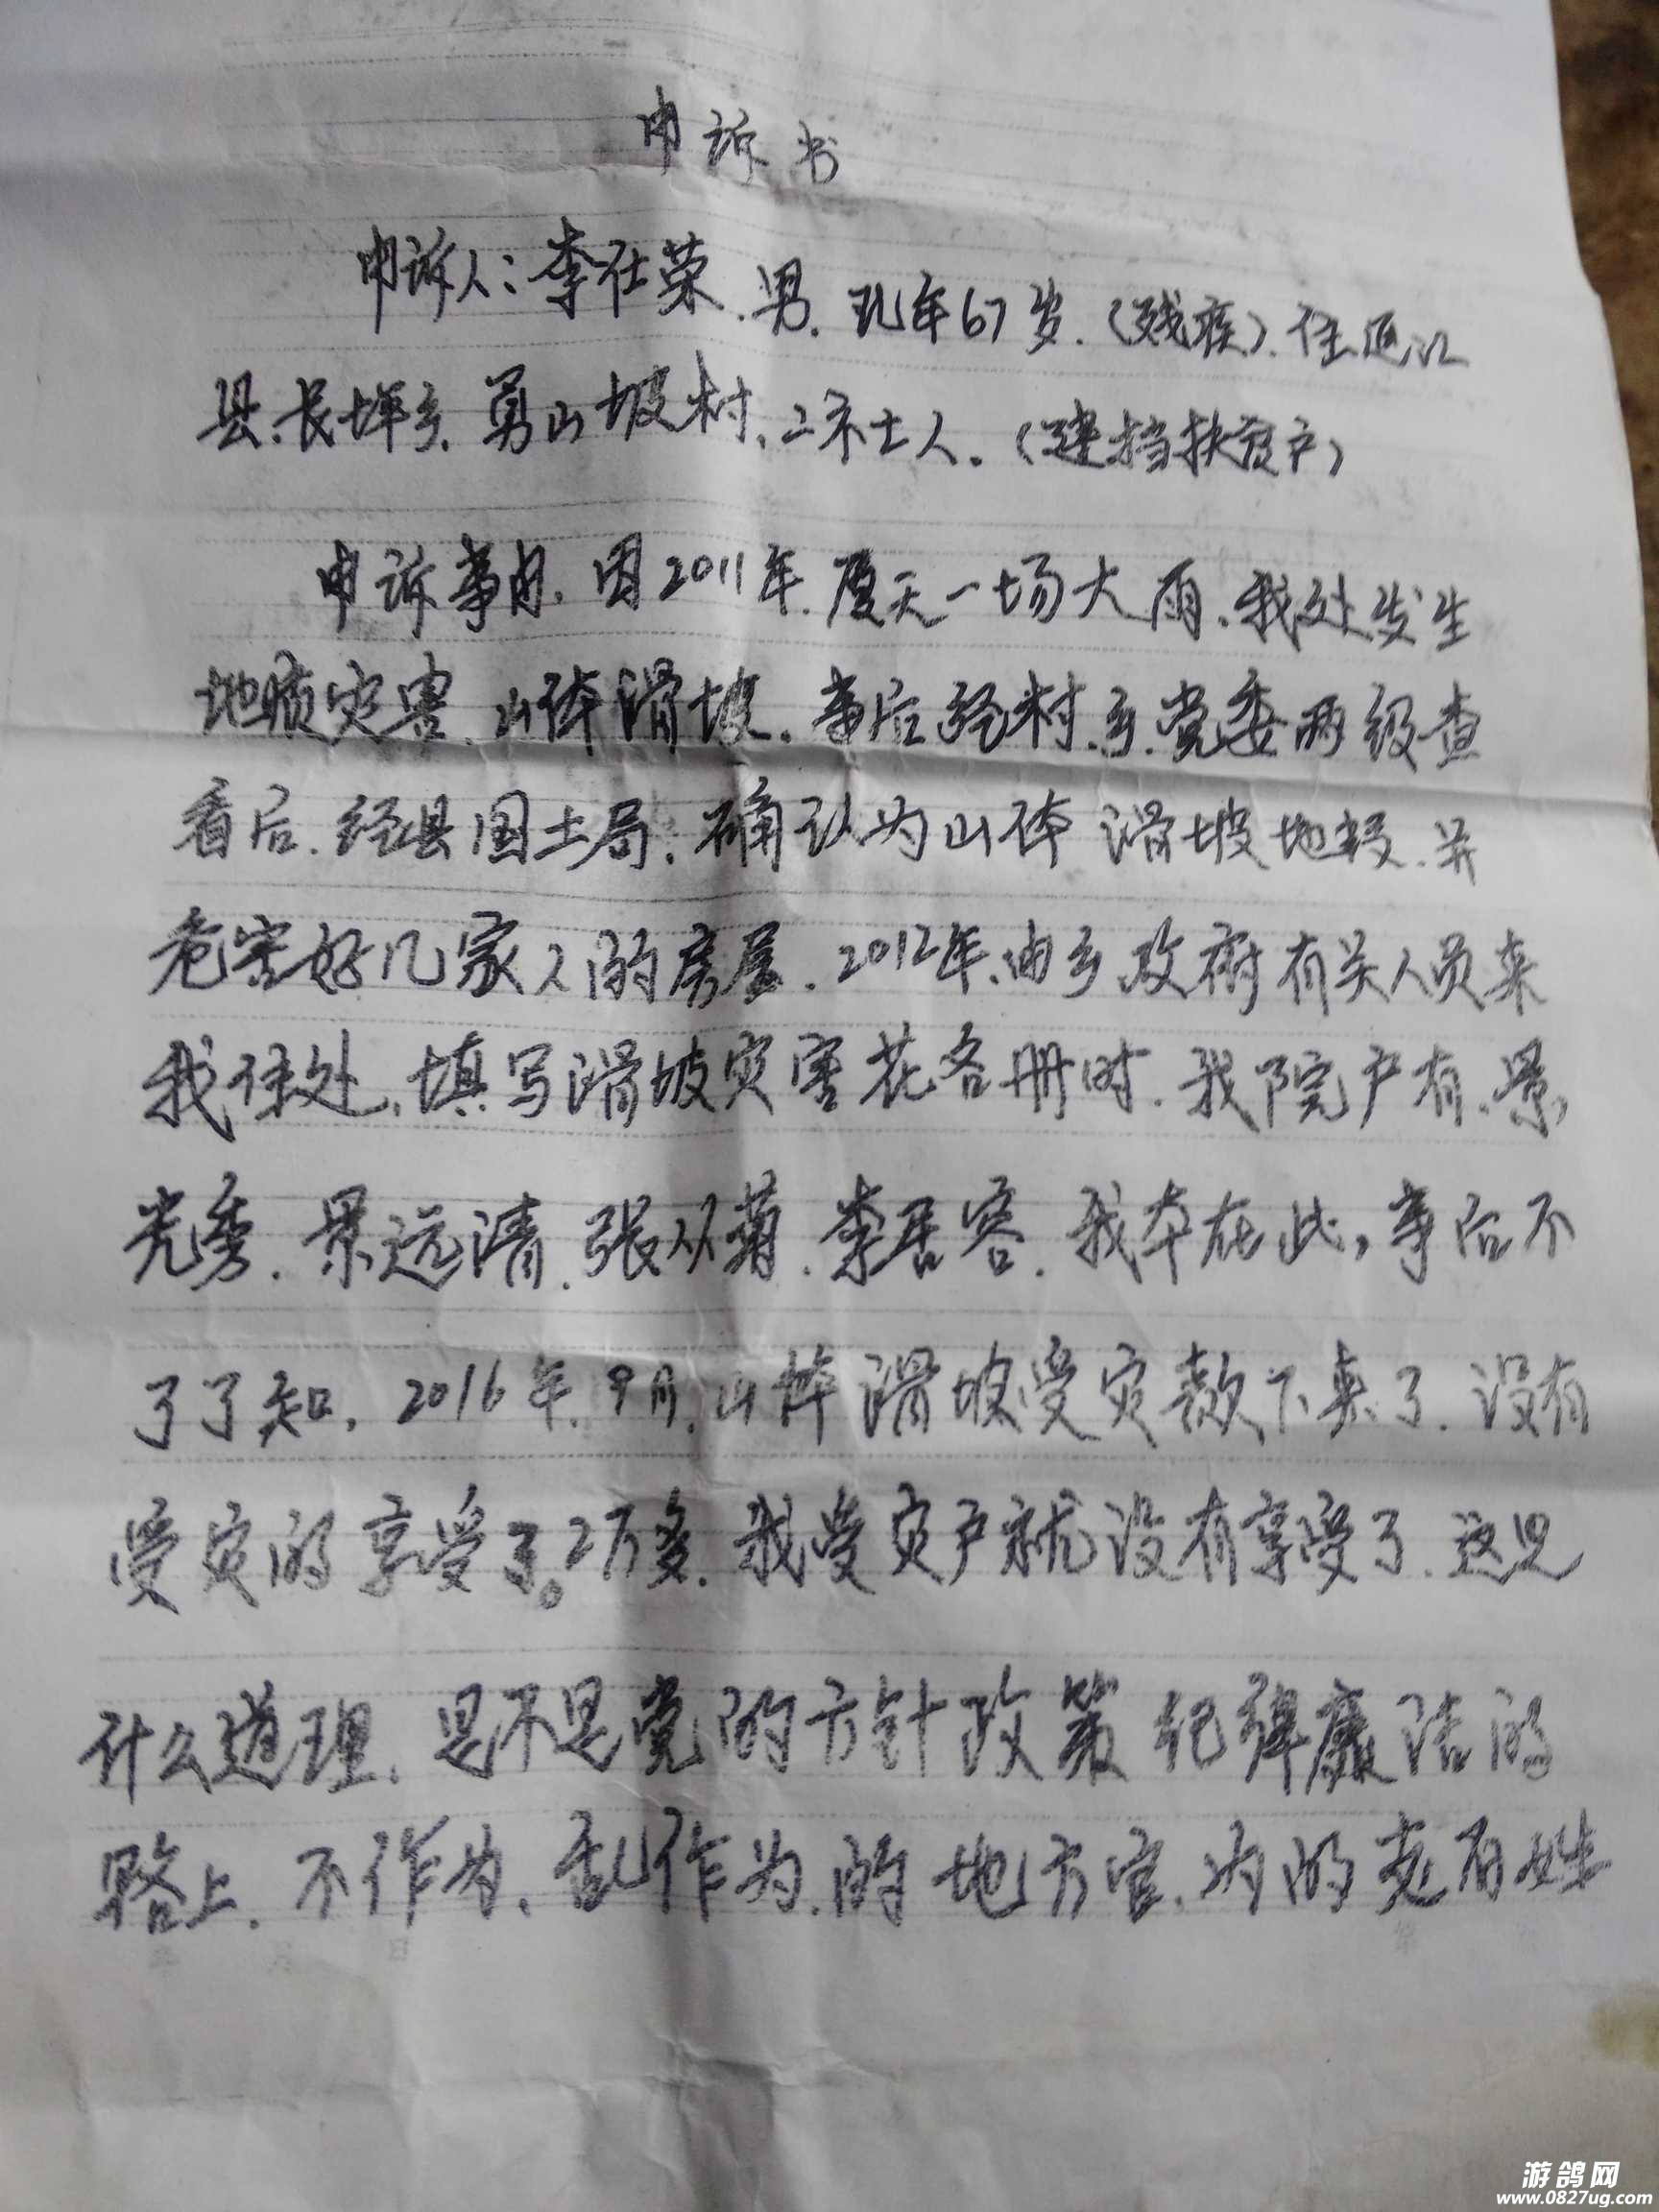 申诉书
申诉人:李仕荣.男.现年67岁.(残疾).住通江
县.长坪乡.勇山坡村.二不士人.(建档扶贫户)
申诉事由.因2011年.厦天一场大雨.我处发生
地质灾害.山体滑坡.事后经村.乡.党委两级查
看后.经县国土局.确认为山体滑坡地段.并
危害好几家人的房屋.2012年.由乡政府有关人员来
我住处.填写滑坡灾害花名册时.我院户有.景
光秀.景远清.张从菊.李君容.我本在此,事后不
了了知.2016年.9月.山体滑坡受灾款下来了.没有
受灾的享受了。2万多.我受灾户就没有享受了.这是
什么道理.是不是党的方针政策纪律廉洁的
路上.不作为.乱作为.的地方官.为的克百姓
游鸽网
www.0827ug.com